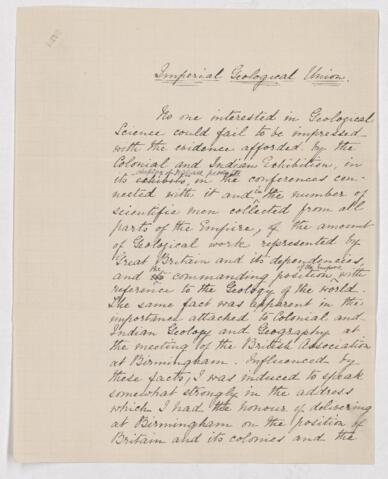 Imperial Geological Union.
No one interested in Geological
Science could fail to be impressed
with the evidence afforded by the
Colonial and Indian Exhibition, in
its exhibits, in the conferences con-
nected with it and in the number of
scientific men collected from all
parts of the Empire, of the amount
of Geological work represented by
Great Britain and its dependencies,
and the commanding position of the Empire with
reference to the Geology of the world.
The same fact was apparent in the
importance attached to Colonial and
Indian Geology and Geography at
the meeting of the British Association
at Birmingham. Influenced by
these facts, I was induced to speak
somewhat strongly in the address
which I had the honour of delivering
at Birmingham on the position of
Britain and its colonies and the